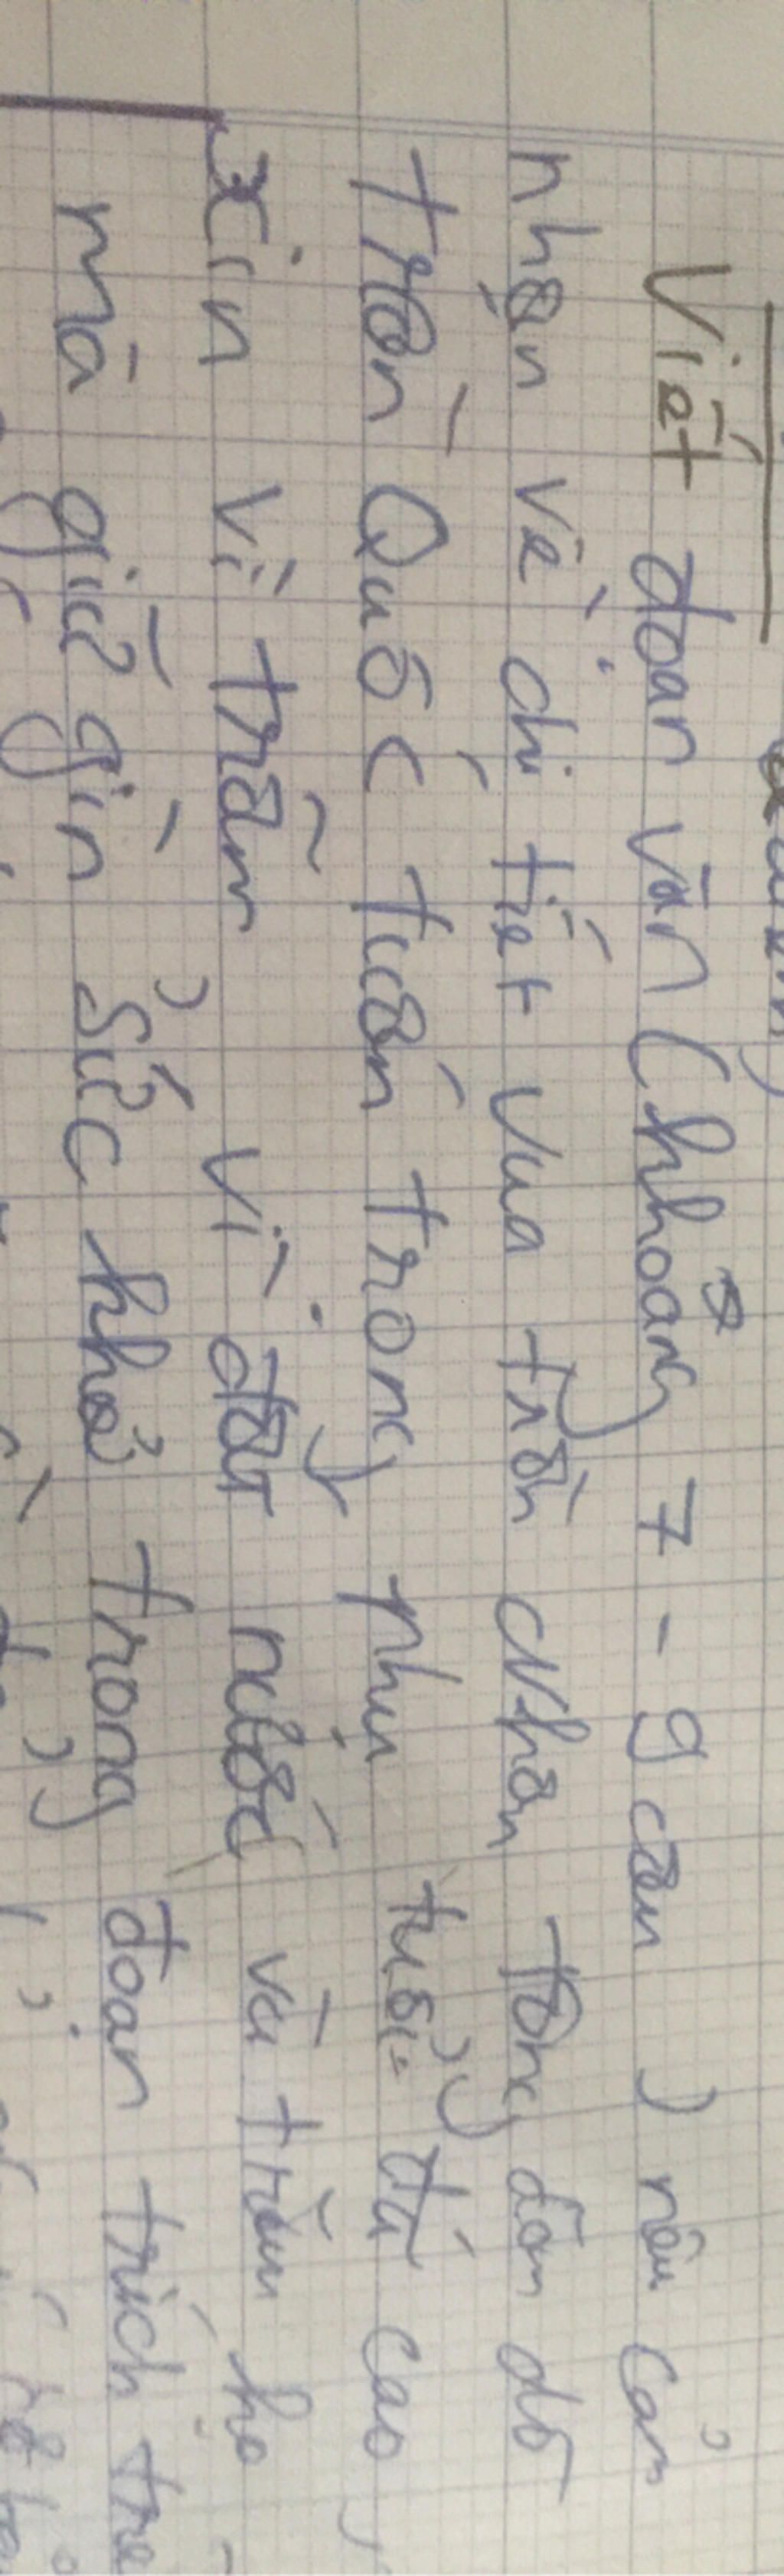 Viết đoạn văn (khoảng 7 - 9 câu) nêu cảm
nhận về chi tiết vua trần Nhân tông dặn dò
trần Quốc tuấn trong phụ tuổi đã cao,
xin vì trẫm vì đất nước và trăm họ
mà giữ gìn sức khỏe trong đoạn trích trên